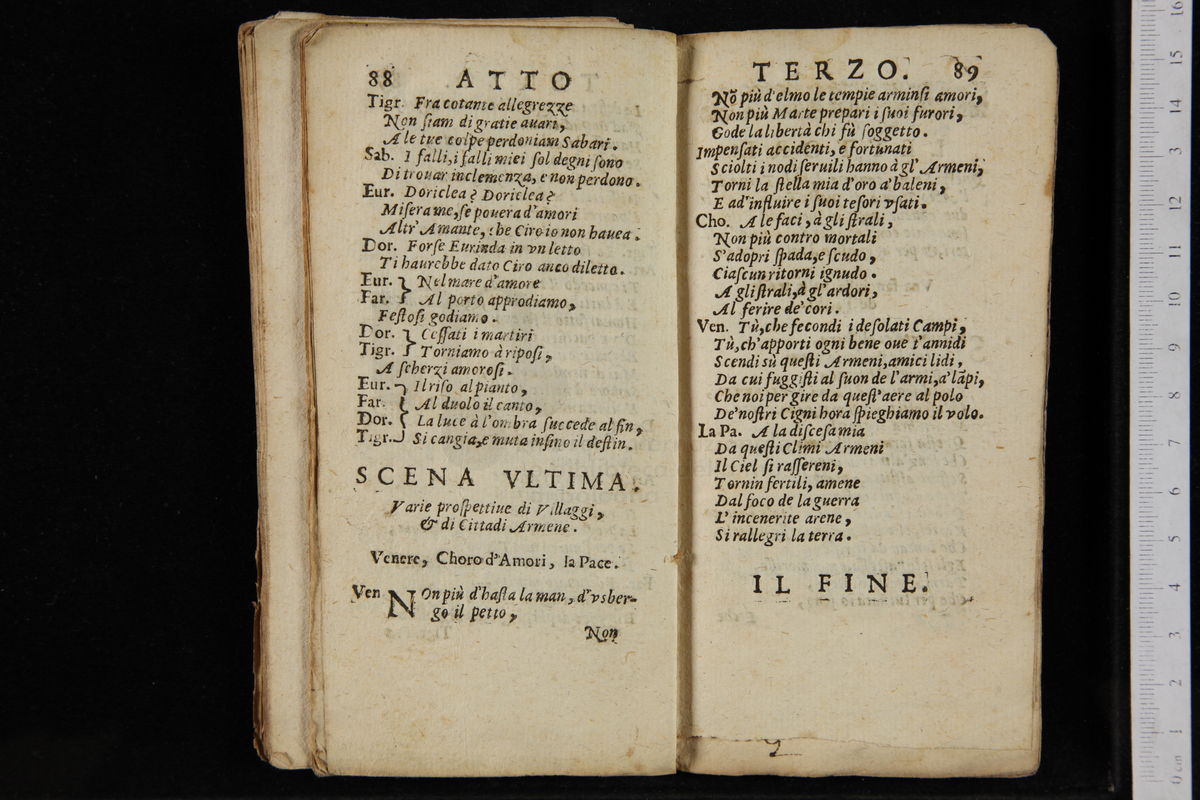 88 ATTO
Tigr. Fra cotante allegrezze
Non ſiam di gratie auari,
A le tue colpe perdoniam Sabari.
Sab. I falli, i falli miei ſol degni ſono
Di trouar inclemenza, e non perdono.
Eur. Doriclea? Doriclea?
Miſera me, ſe pouera d'amori
Altr' Amante, che Ciro io non hauea.
Dor. Forſe Eurinda in vn letto
Ti haurebbe dato Ciro anco diletto.
Eur. Nel mare d'amore
Far. Al porto approdiamo,
Feſtoſi godiamo.
Dor. Ceſſati i martiri
Tigr. Torniamo à ripoſi,
A ſcherzi amoroſi.
Eur. Il riſo al pianto,
Far. Al duolo il canto,
Dor. La luce à l'ombra ſuccede al fin,
Tigr. Si cangia, e muta inſino il deſtin.
SCENA VLTIMA.
Varie proſpettiue di Villaggi,
& di Cittadi Armene.
Venere, Choro d'Amori, la Pace.
Ven NOn più d'haſta la man, d'vsber-
go il petto,
Non
TERZO. 89
Nõ più d'elmo le tempie arminſi amori,
Non più Marte prepari i ſuoi furori,
Gode la libertà chi fù ſoggetto.
Impenſati accidenti, e fortunati
Sciolti i nodi ſeruili hanno à gl' Armeni,
Torni la ſtella mia d'oro a' baleni,
E ad' influire i ſuoi teſori vſati.
Cho. A le faci, à gli ſtrali,
Non più contro mortali
S'adopri ſpada, e ſcudo,
Ciaſcun ritorni ignudo.
A gli ſtrali, à gl'ardori,
Al ferire de' cori.
Ven. Tù, che fecondi i deſolati Campi,
Tù, ch'apporti ogni bene oue t'annidi
Scendi sù queſti Armeni, amici lidi,
Da cui fuggiſti al ſuon de l'armi, a' lãpi,
Che noi per gire da queſt' aere al polo
De' noſtri Cigni hora ſpieghiamo il volo.
La Pa. A la diſceſa mia
Da queſti Climi Armeni
Il Ciel ſi raſſereni,
Tornin fertili, amene
Dal foco de la guerra
L' incenerite arene,
Si rallegri la terra.
IL FINE.
0 cm 1 2 3 4 5 6 7 8 9 10 11 12 13 14 15 16